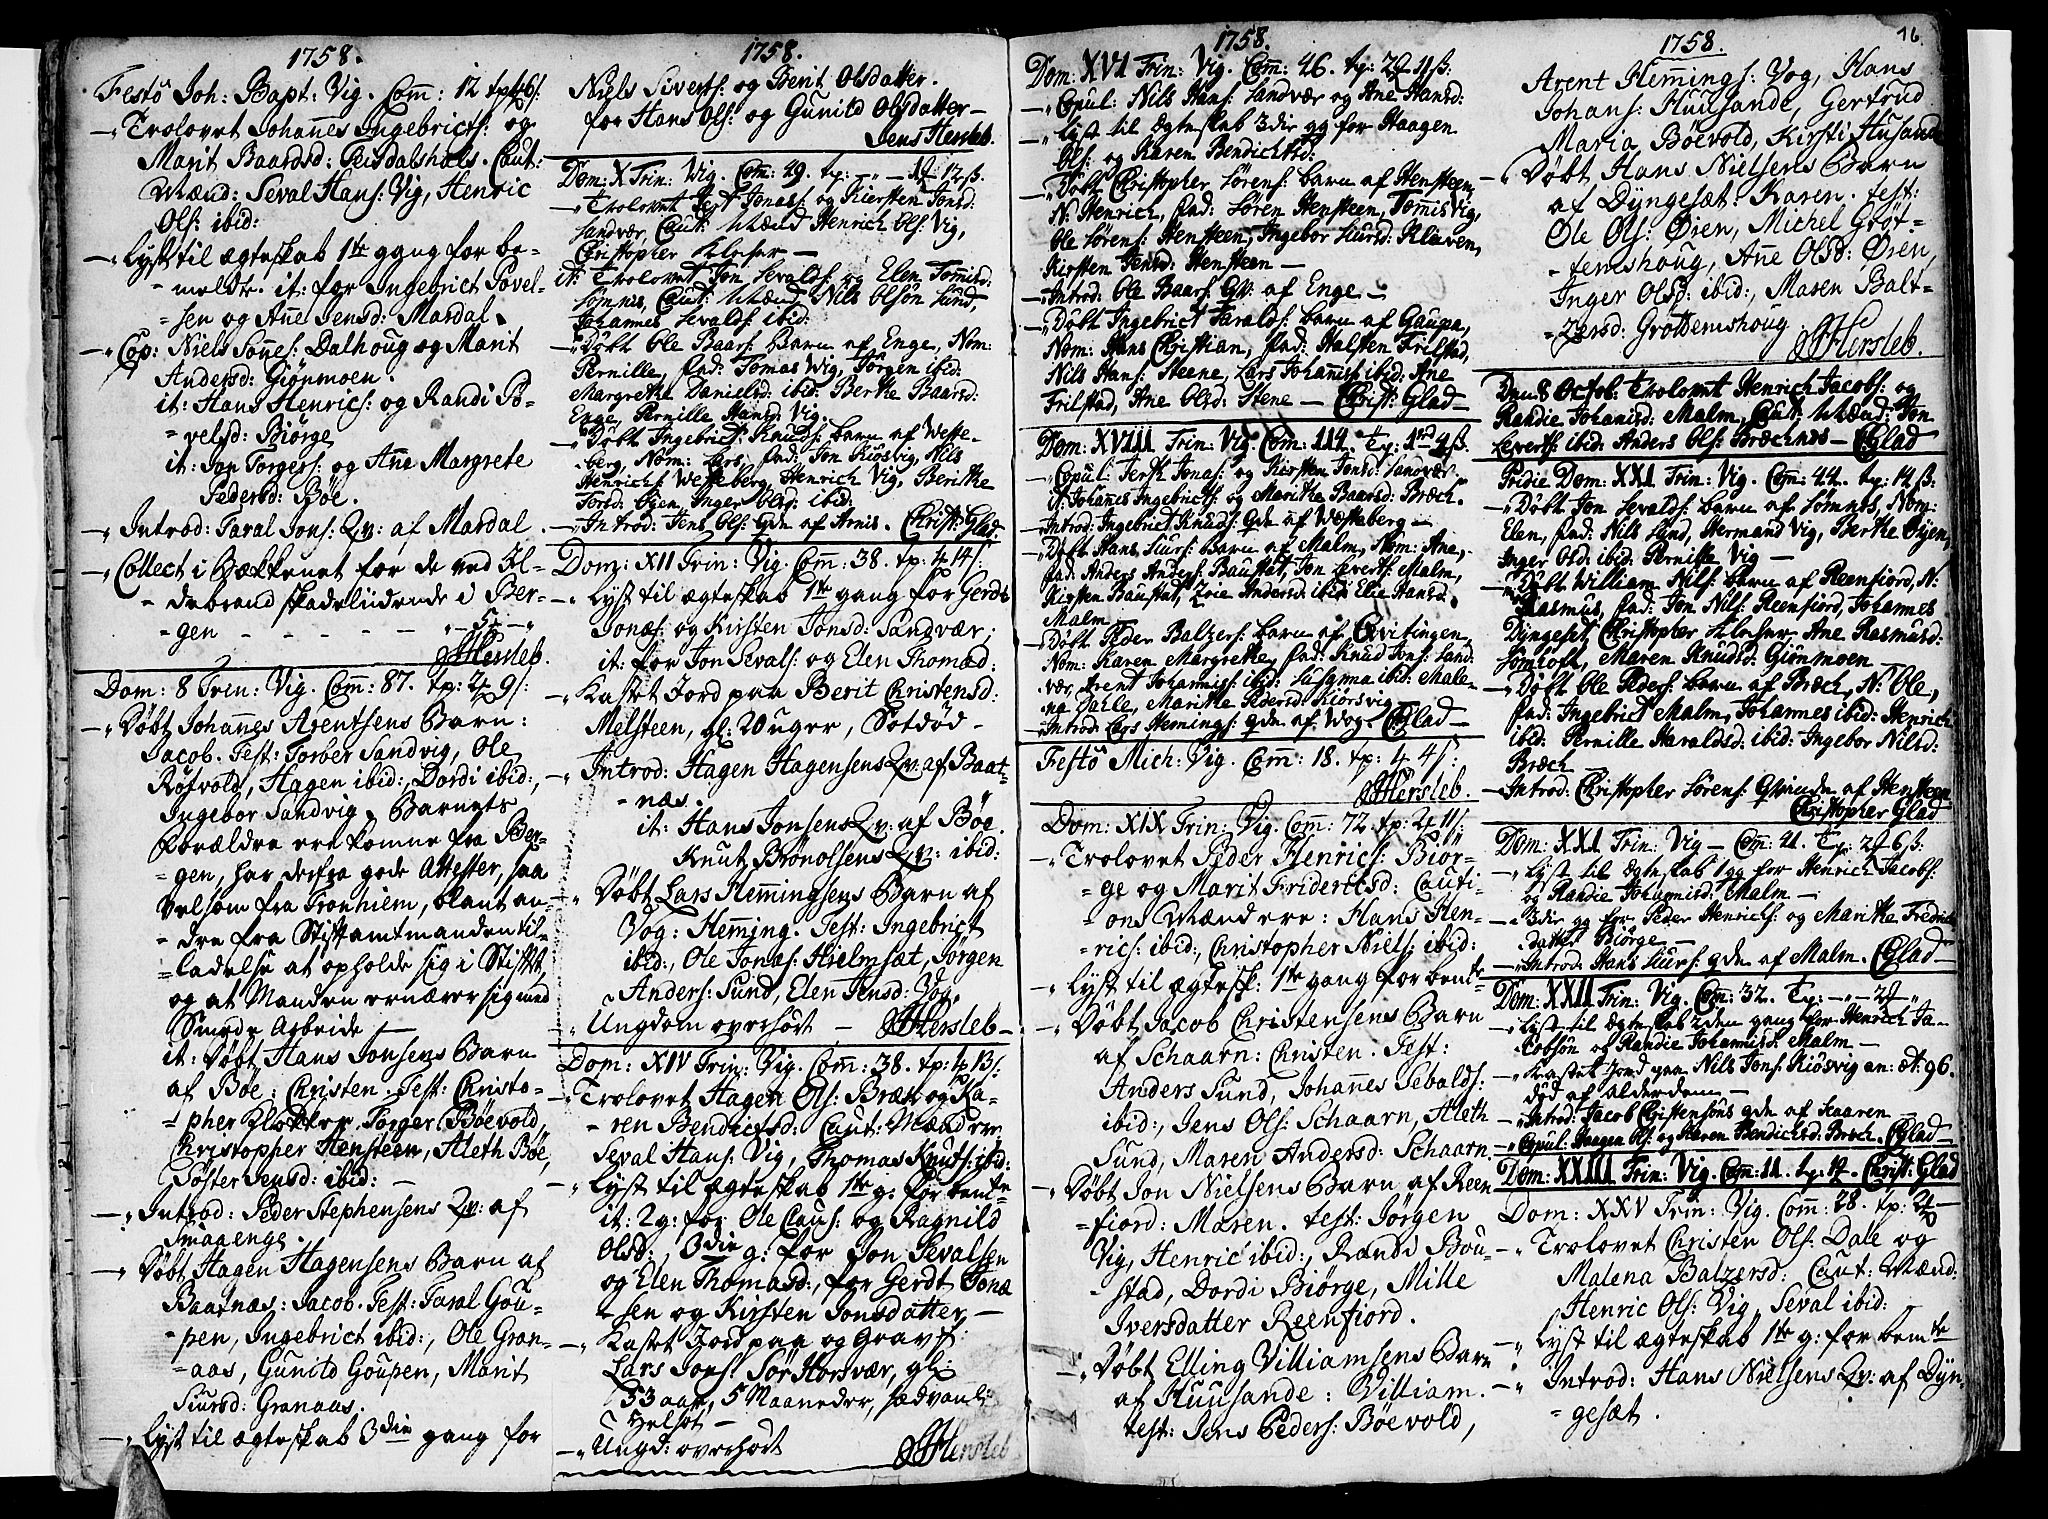 1758.
Festô Joh: Bapt: Vig. Com̄: 12
—„ Trolovet Johannes Ingebricts: og
Marit Baardsd: Caut:
Mænd: Seval Hans: Vig, Henric
Ols: ibid:
—„ Lyst til ægteskab 1te gang for be-
-meldte. it: for Ingebrict Povel-
-sen og Ane Jensd: Mardal.
—„ Cop: Niels Sönes: Dalhoug og Marit
Andersd: Giönmoen.
it: Hans Henrics: og Randi Po-
-velsd: Biörge
it: Jon Torgers: og Ane Margrete
Pedersd: Böe.
—„ Introd: Taral Jons: Qv: af Mardal.
—„ Collect i Bækkenet for de ved Il-
-debrand skadeliidende i Ber-
-gen - - - - -
Hersleb.
Dom: 8 Trin: Vig. Com̄: 87.
—„ Döbt Johannes Arentsens Barn:
Jacob. Test: Torber Sandvig, Ole
Rötvold, Hagen ibid:, Dordi ibid:,
Ingebor Sandvig. Barnets
Forældre ere komne fra Ber-
-gen, har derfra gode Attester, saa
velsom fra Tronhiem, blant an-
-dre fra Stiftamtmanden til-
-ladelse at opholde sig i Stiftet,
og at Manden ernærer sig med
Smede Arbeide —
it: Döbt Hans Jonsens Barn
af Böe: Christen. Test: Christo-
-pher Klokker, Torger Böevold,
Christopher Hensteen, Aleth Böe,
Söster Jensd: ibid: —
—„ Introd: Peder Stephensens Qv: af
Smaaenge.
—„ Döbt Hagen Hagensens Barn af
Baatnæs: Jacob. Test: Taral Gou-
-pen, Ingebrict ibid:, Ole Gran-
-aas, Gunild Goupen, Marit
Siursd: Granaas.
—„ Lyst til ægteskab 3die gang for
1758.
Niels Siverts: og Berit Olsdatter.
for Hans Ols: og Gunild Olsdatter —
Jens Hersleb.
Dom: X Trin: Vig. Com̄: 49.
—„ Trolovet Jonas: og Kiersten Jonsd:
Sandvær, Caut: Mænd Henrich Ols: Vig,
Christopher Klocker —
it: Trolovet Jon Sevalds: og Elen Tommisd:
Sömnes, Caut: Mænd, Nils Olsön Sund,
Johannes Sevalds: ibid:
—„ Döbt Ole Baars: Barn af Enge, Nom:
Pernille, fad: Tomas Vig, Jörgen ibid:
Margrethe Danielsd: ibid: Berthe Baarsd:
Enge, Pernille Hansd: Vig.
—„ Döbt Ingebrict Knuds: barn af Weste-
berg, Nom: Lars, fad: Jon Kiösvig, Nils
Henrichs: Westeberg, Henrich Vig, Berithe
Tordsd: Öyen Inger Olsd: ibid:
—„ Introd: Jens Ols: Qde af Arnis. Christ: Glad.
Dom: XII Trin: Vig. Com̄: 38. tp: 4 14 s:
—„ Lyst til ægteskab 1te gang for Gerdt
Jonas: og Kirsten Jonsd: Sandvær;
it: for Jon Sevals: og Elen Thomæd:
—„ Kastet Jord paa Berit Christensd:
Melsteen, gl: 2 Uger, Sotdöd —
—„ Introd: Hagen Hagensens Qv: af Baat-
-næs.
it: Hans Jonsens Qv: af Böe.
Knut Brönolsens Qv: ibid:
—„ Döbt Lars Hemmingsens Barn af
Vog: Hemming. Test: Ingebrict
ibid:, Ole Jonas: Hielmsæt, Jörgen
Anders: Sund, Elen Jensd: Vog.
—„ Ungdom overhört — Hersleb —
Dom: XIV Trin: Vig. Com̄: 38. tp: 4 13 s:
—„ Trolovet Hagen Ols: Bræk og Ka-
-ren Bendictsd: Caut: Mænd ere
Seval Hans: Vig, Thomas Knuts: ibid:
—„ Lyst til ægteskab 1te g: for bemte
it: 2 g: for Ole Claus: og Ragnild
Olsd:, 3die g: for Jon Sevalsen
og Elen Thomasd:, for Gerdt Jona
-sen og Kirsten Jonsdatter —
—„ Kastet Jord paa og Gravf:
Lars Jons: Sör Horsvær, gl:
53 aar, 5 Maaneder, sædvanl:
Helsot —
—„ Ungd: overhört Hersleb
1758.
Dom: XVI Trin: Vig. Com̄: 46.
—„ Copul: Nils Hans: Sandvær og Ane Hansd:
—„ Lyst til Ægteskab 3die gg for Haagen
Ols: og Karen Bendichtsd:
—„ Döbt Christopher Sörens: barn af Hensteen,
N: Henrich, fad: Sören Hensteen, Tommis Vig,
Ole Sörens: Hensteen, Ingebor Siursd: Kleven,
Kirsten Jensd: Hensteen —
—„ Introd: Ole Baars: Qv: af Enge —
—„ Döbt Ingebrict Taralds: barn af Gaupa,
Nom: Hans Christian, fad: Halsten Trilstad,
Nils Hans: Steene, Lars Johannis: ibid: Ane
Trilstad, Ane Olsd: Stene — Christ: Glad —
Dom: XVIII Trin: Vig. Com: 114.
—„ Copul: Jonas: og Kirsten Jonsd: Sandvær.
it: Johannes Ingebricts: og Marithe Baarsd: Bræch.
—„ Introd: Ingebrict Knuds: Qde af Westeberg —
—„ Döbt Hans Siurs: barn af Malm, Nom: Ane,
fad: Anders Anders: Baustat, Jon Leverts: Malm,
Kirsten Baustat, Andersd: ibid: Elie Hansd:
Malm.
—„ Döbt Peder Balzers: barn af Qvitingen,
Nom: Karen Margrethe, fad: Knud Jons: Sand-
vær, Arent Johannis: ibid: Susanna ibid: Male-
na Dahle, Marithe Pedersd: Kiörsvig
—„ Introd: Lars Hemings: Qde af Wog. CGlad —
Festô Mich: Vig. Com̄: 18. tp: 4 4 s:
Hersleb.
Dom: XIX Trin: Vig. Com̄: 72.
—„ Trolovet Peder Henrics: Biör-
-ge og Marit Fridericsd: Cauti-
-ons Mændere: Hans Hen-
-rics: ibid:, Christopher Niels: ibid:
—„ Lyst til ægtesk: 1te gang for bemte
—„ Döbt Jacob Christensens Barn
af Schaarn: Christen. Test:
Anders Sund, Johannes Sebalds:
ibid:, Jens Ols: Schaarn, Aleth
Sund, Maren Andersd: Schaarn
—„ Döbt Jon Nielsens Barn af Reen
-fiord: Maren. Test: Jörgen
Vig, Henric ibid:, Randi Bou-
-stad, Dordi Biörge, Mille
Iversdatter Reenfiord.
—„ Döbt Elling Villiamsens Barn
af Huusande: Villiam.
Test: Jens Peders: Böevold,
16
1758.
Arent Hemmings: Vog, Hans
Johans: Huusande, Gertrud
Maria Böevold, Kirsti Husande
—„ Döbt Hans Nielsens Barn
af Dyngesæt: Karen. Test:
Ole Ols: Öien, Michel Gröt-
-temshoug, Ane Olsd: Öien,
Inger Olsd: ibid:, Maren Balt-
-zersd: Grottemshoug
Hersleb.
Den 8 Octob: Trolovet Henrich Jacobs: og
Randie Johanisd: Malm, Caut: Mænd: Jon
Leverts: ibid: Anders Ols: Bræchnes — CGlad
Pridie Dom: XXI Trin: Vig. Com̄: 44. tp: 14 ß:
—„ Döbt Jon Sevalds: barn af Sömnes, Nom:
Elen, fad: Nils Sund, Hermand Vig, Berthe Öyen,
Inger Olsd: ibid: Pernille Vig —
—„ Döbt William Nils: barn af Reenfiord, N:
Rasmus, fad: Jon Nils: Reenfiord, Johannes
Dyngeset, Christopher Klocker Ane Rasmusd:
Maren Knudsd: Giönmoen —
—„ Döbt Ole Peders: barn af Bræch, N: Ole,
fad: Ingebrict Malm, Johannes ibid: Henrich
ibid: Pernille Haraldsd: ibid: Ingebor Nilsd:
Bræch —
—„ Introd: Christopher Sörens: Qvinde af Hensteen
Christopher Glad
Dom: XXI Trin: Vig — Com: 41.
—„ Lyst til Ægteskab 1 gg for Henrich Jacobs:
og Randie Johannisd: Malm —
—„ 3die gg for Peder Henrichs: og Marithe Fredrichs
datter Biörge —
—„ Introd: Hans Siurs: Qde af Malm. CGlad —
Dom: XXII Trin: Vig. Com: 32.
—„ Lyst til Ægteskab 2den gang for Henrich Ja-
cobsön og Randie Johannisd: Malm —
—„ Kastet Jord paa Nils Jons: Kiösvig an: æt: 96.
död af Alderdom —
—„ Introd: Jacob Christensöns Qde af Scaaren —
—„ Copul: Haagen Ols: og Karen Bendichsd: Bræch. CGlad —
Dom: XXIII Trin: Vig. Com̄: 11. Christ: Glad
Dom: XXV Trin: Vig. Com̄: 28.
—„ Trolovet Christen Ols: Dale og
Malena Balzersd: Caut: Mænd:
Henric Ols: Vig, Seval ibid:
—„ Lyst til ægteskab 1te g: for bemte
—„ Introd: Hans Nielsens Qv: af Dyn-
-gesæt.